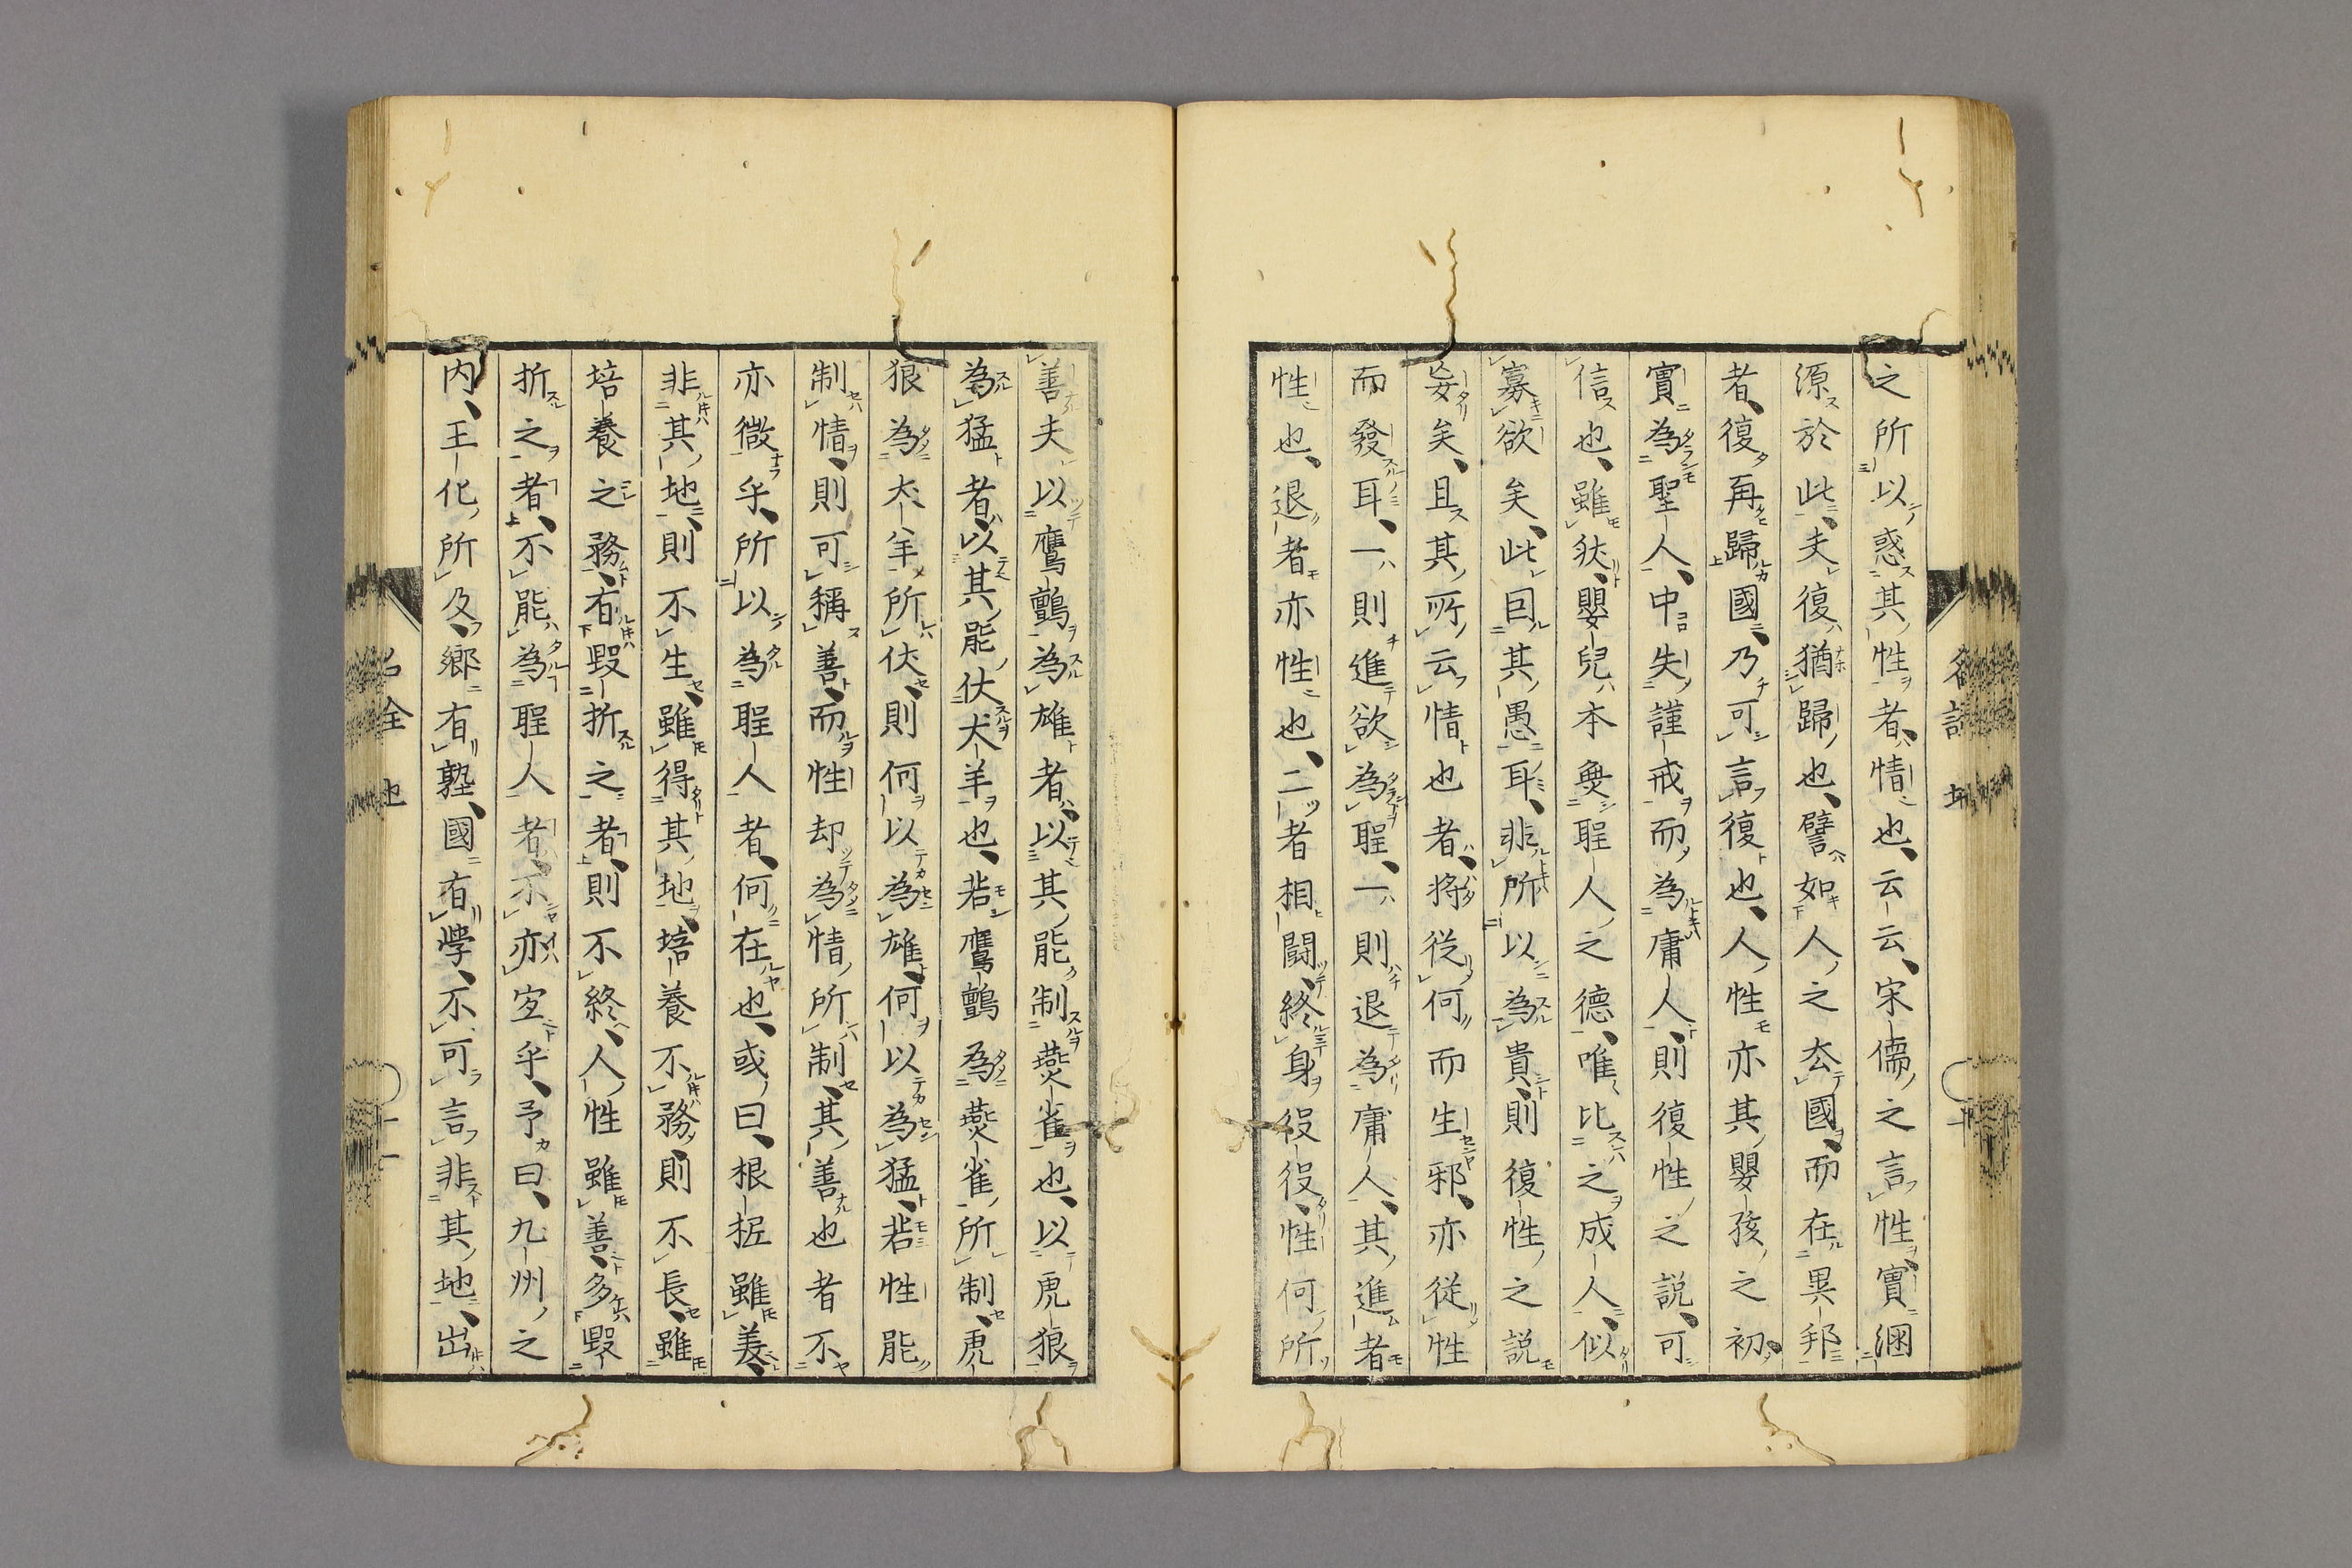 之所以惑其性者、情也、云云、宋儒之言性、實溷
源於此、夫復猶歸也、譬如人之去國、而在異邦
者、復再歸國、乃可言復也、人性亦其嬰孩之初
實為聖人、中失謹戒、而為庸人、則復性之說、可
信也、雖然、嬰兒本無聖人之德、唯比之成人、似
寡欲矣、此囙其愚耳、非所以為貴、則復性之說
妄矣、且其所云情也者、將從何而生邪、亦從性
而發耳、一則進欲為聖、一則退為庸人、其進者
性也、退者亦性也、二者相鬪、終身役役、性何所
善夫以鷹鸇為雄者、以其能制燕雀也、以虎狼
為猛者、以其能伏犬羊也、若鷹鸇為燕雀所制、虎
狼為犬羊所伏、則何以為雄、何以為猛、若性能
制情、則可稱善、而性却為情所制、其善也者不
亦微乎、所以為聖人者、何在也、或曰、根荄雖美、
非其地、則不生、雖得其地、培養不務、則不長、雖
培養之務、有毀折之者、則不終、人性雖善、多毀
折之者、不能為聖人者、不亦宜乎、予曰、九州之
內、王化所及、鄉有塾、國有學、不可言非其地、出